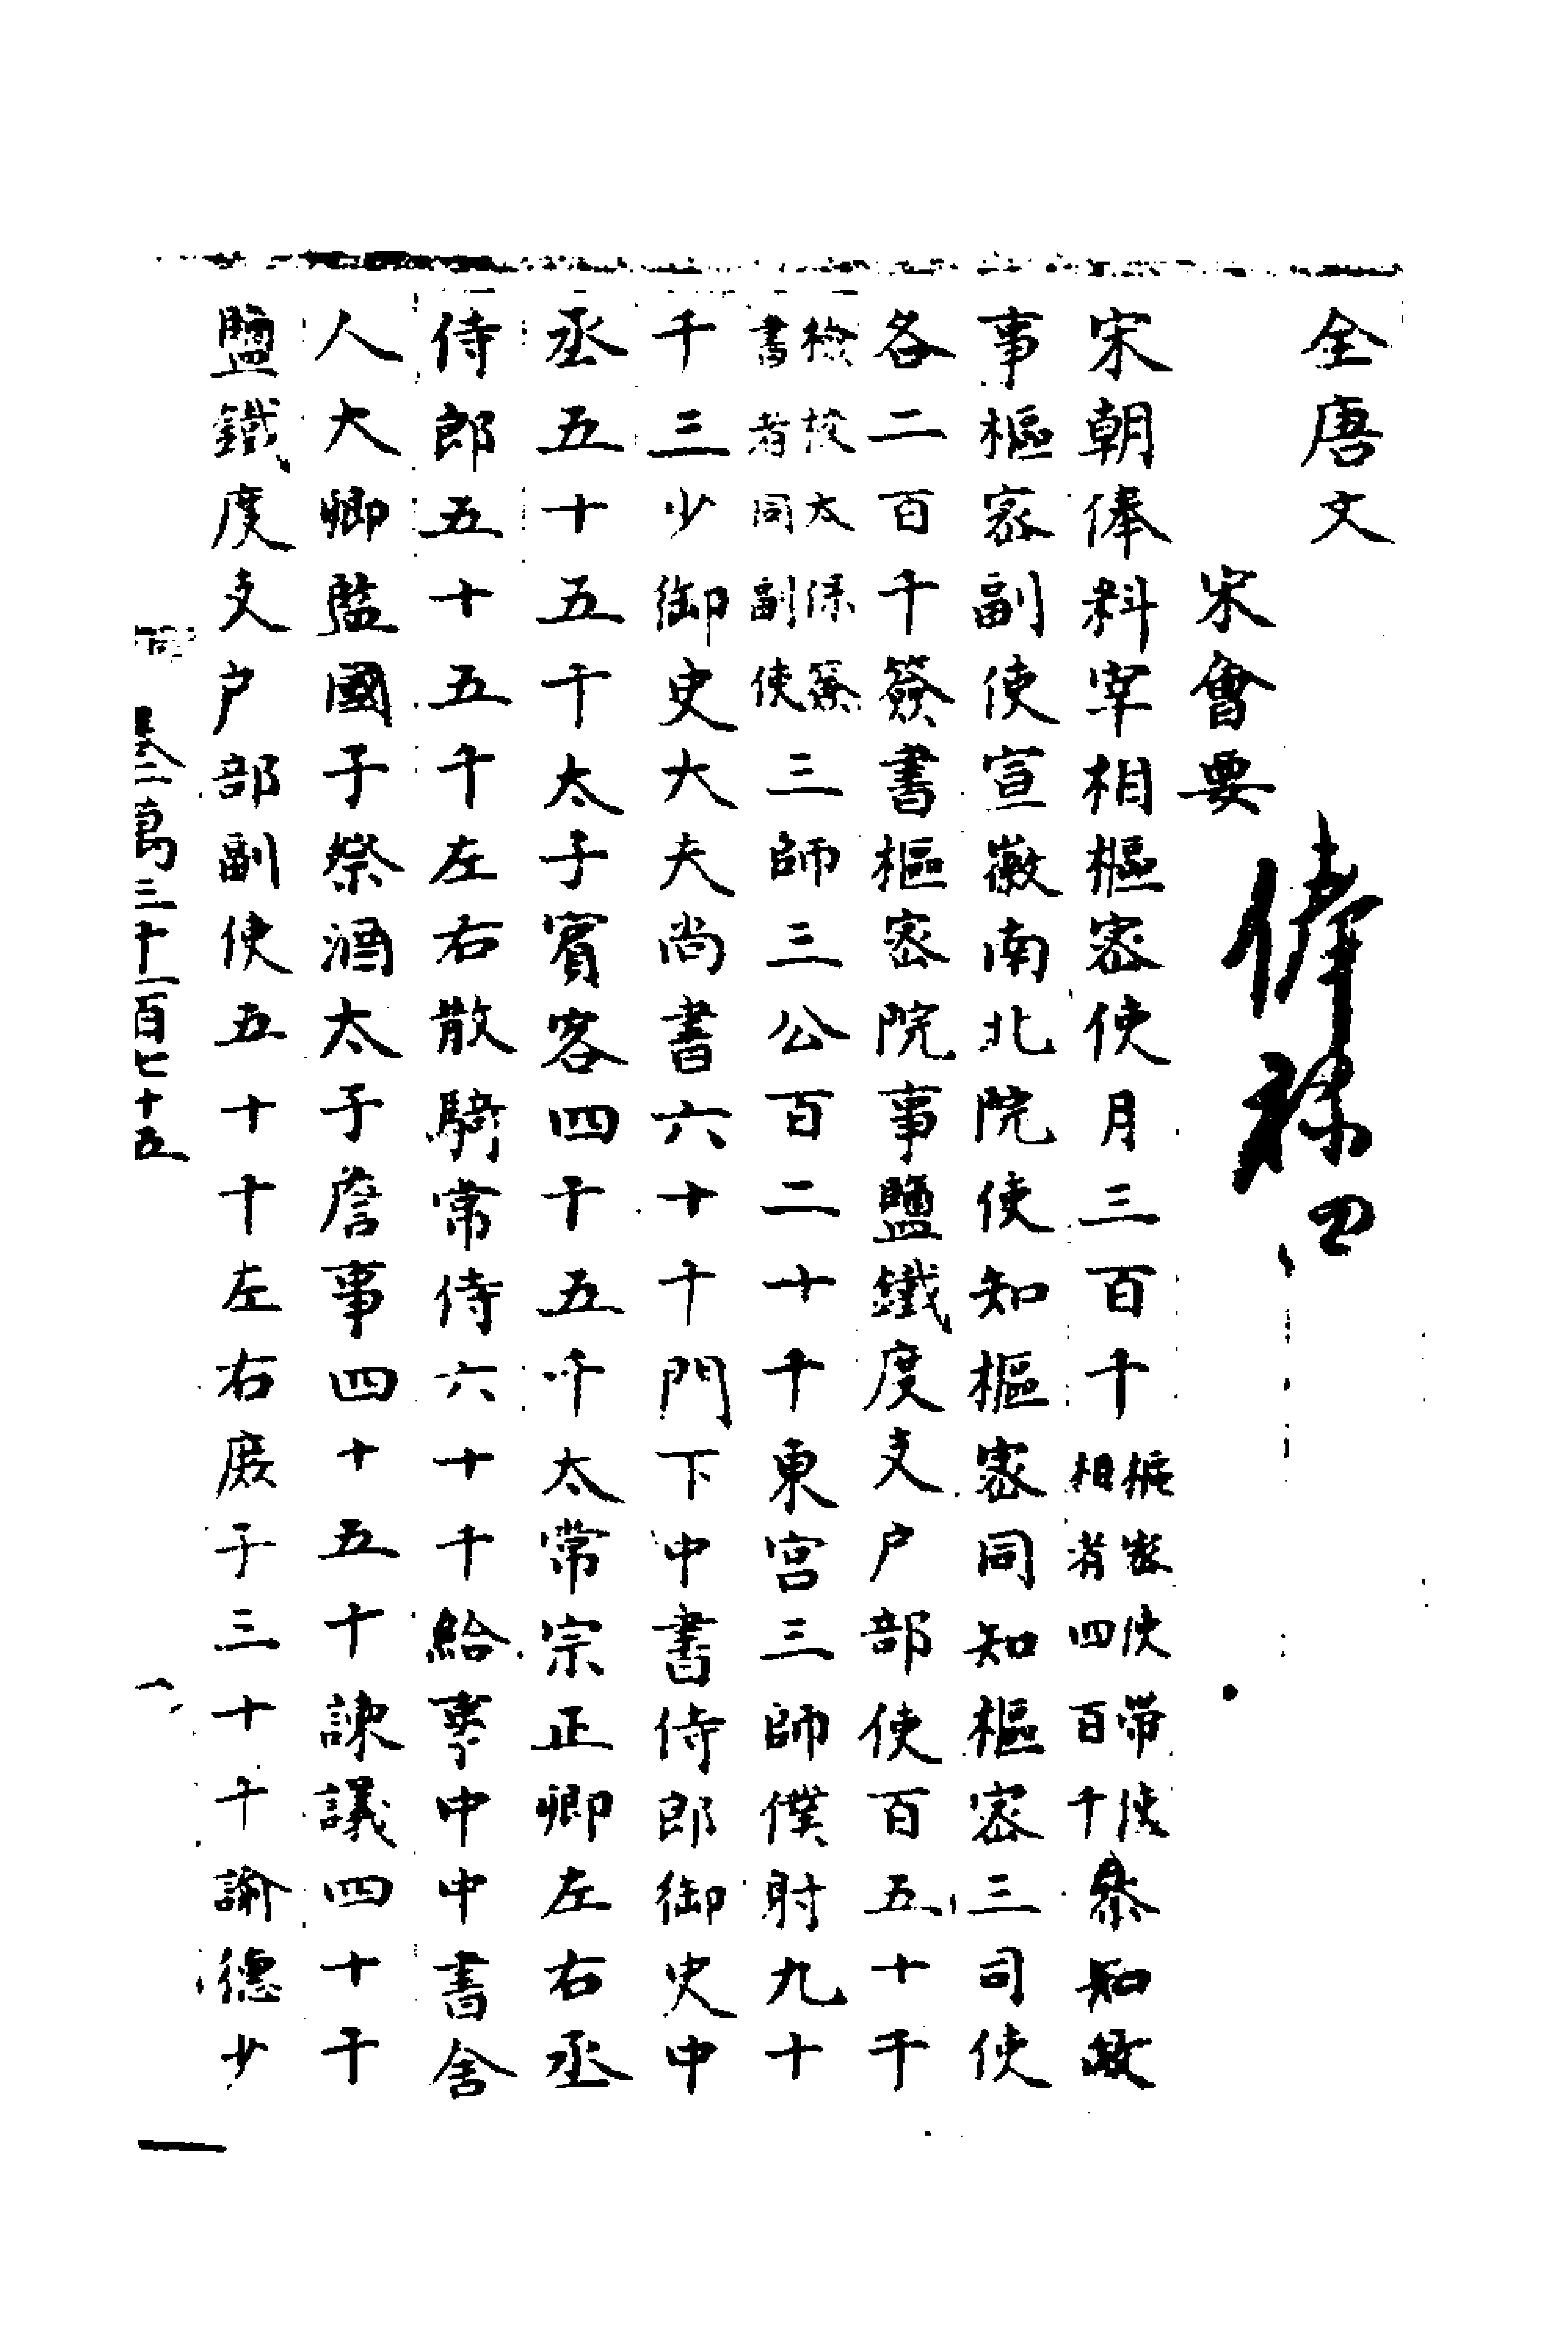 全唐文
宋會要
俸祿四
宋朝俸料宰相樞密使月三百千樞密使帶使相者四百千叅知政
事樞密副使宣徽南北院使知樞密同知樞密三司使
各二百千簽書樞密院事鹽鐵度支户部使百五十千
檢校太保簽書者同副使三師三公百二十千東宫三師僕射九十
千三少御史大夫尚書六十千門下中書侍郎御史中
丞五十五千太子賓客四十五千太常宗正卿左右丞
侍郎五十五千左右散騎常侍六十千給事中中書舍
人大卿監國子祭酒太子詹事四十五千諫議四十千
鹽鐵度支户部副使五十千左右庶子三十千諭德少
卷二萬三千一百七十五
一